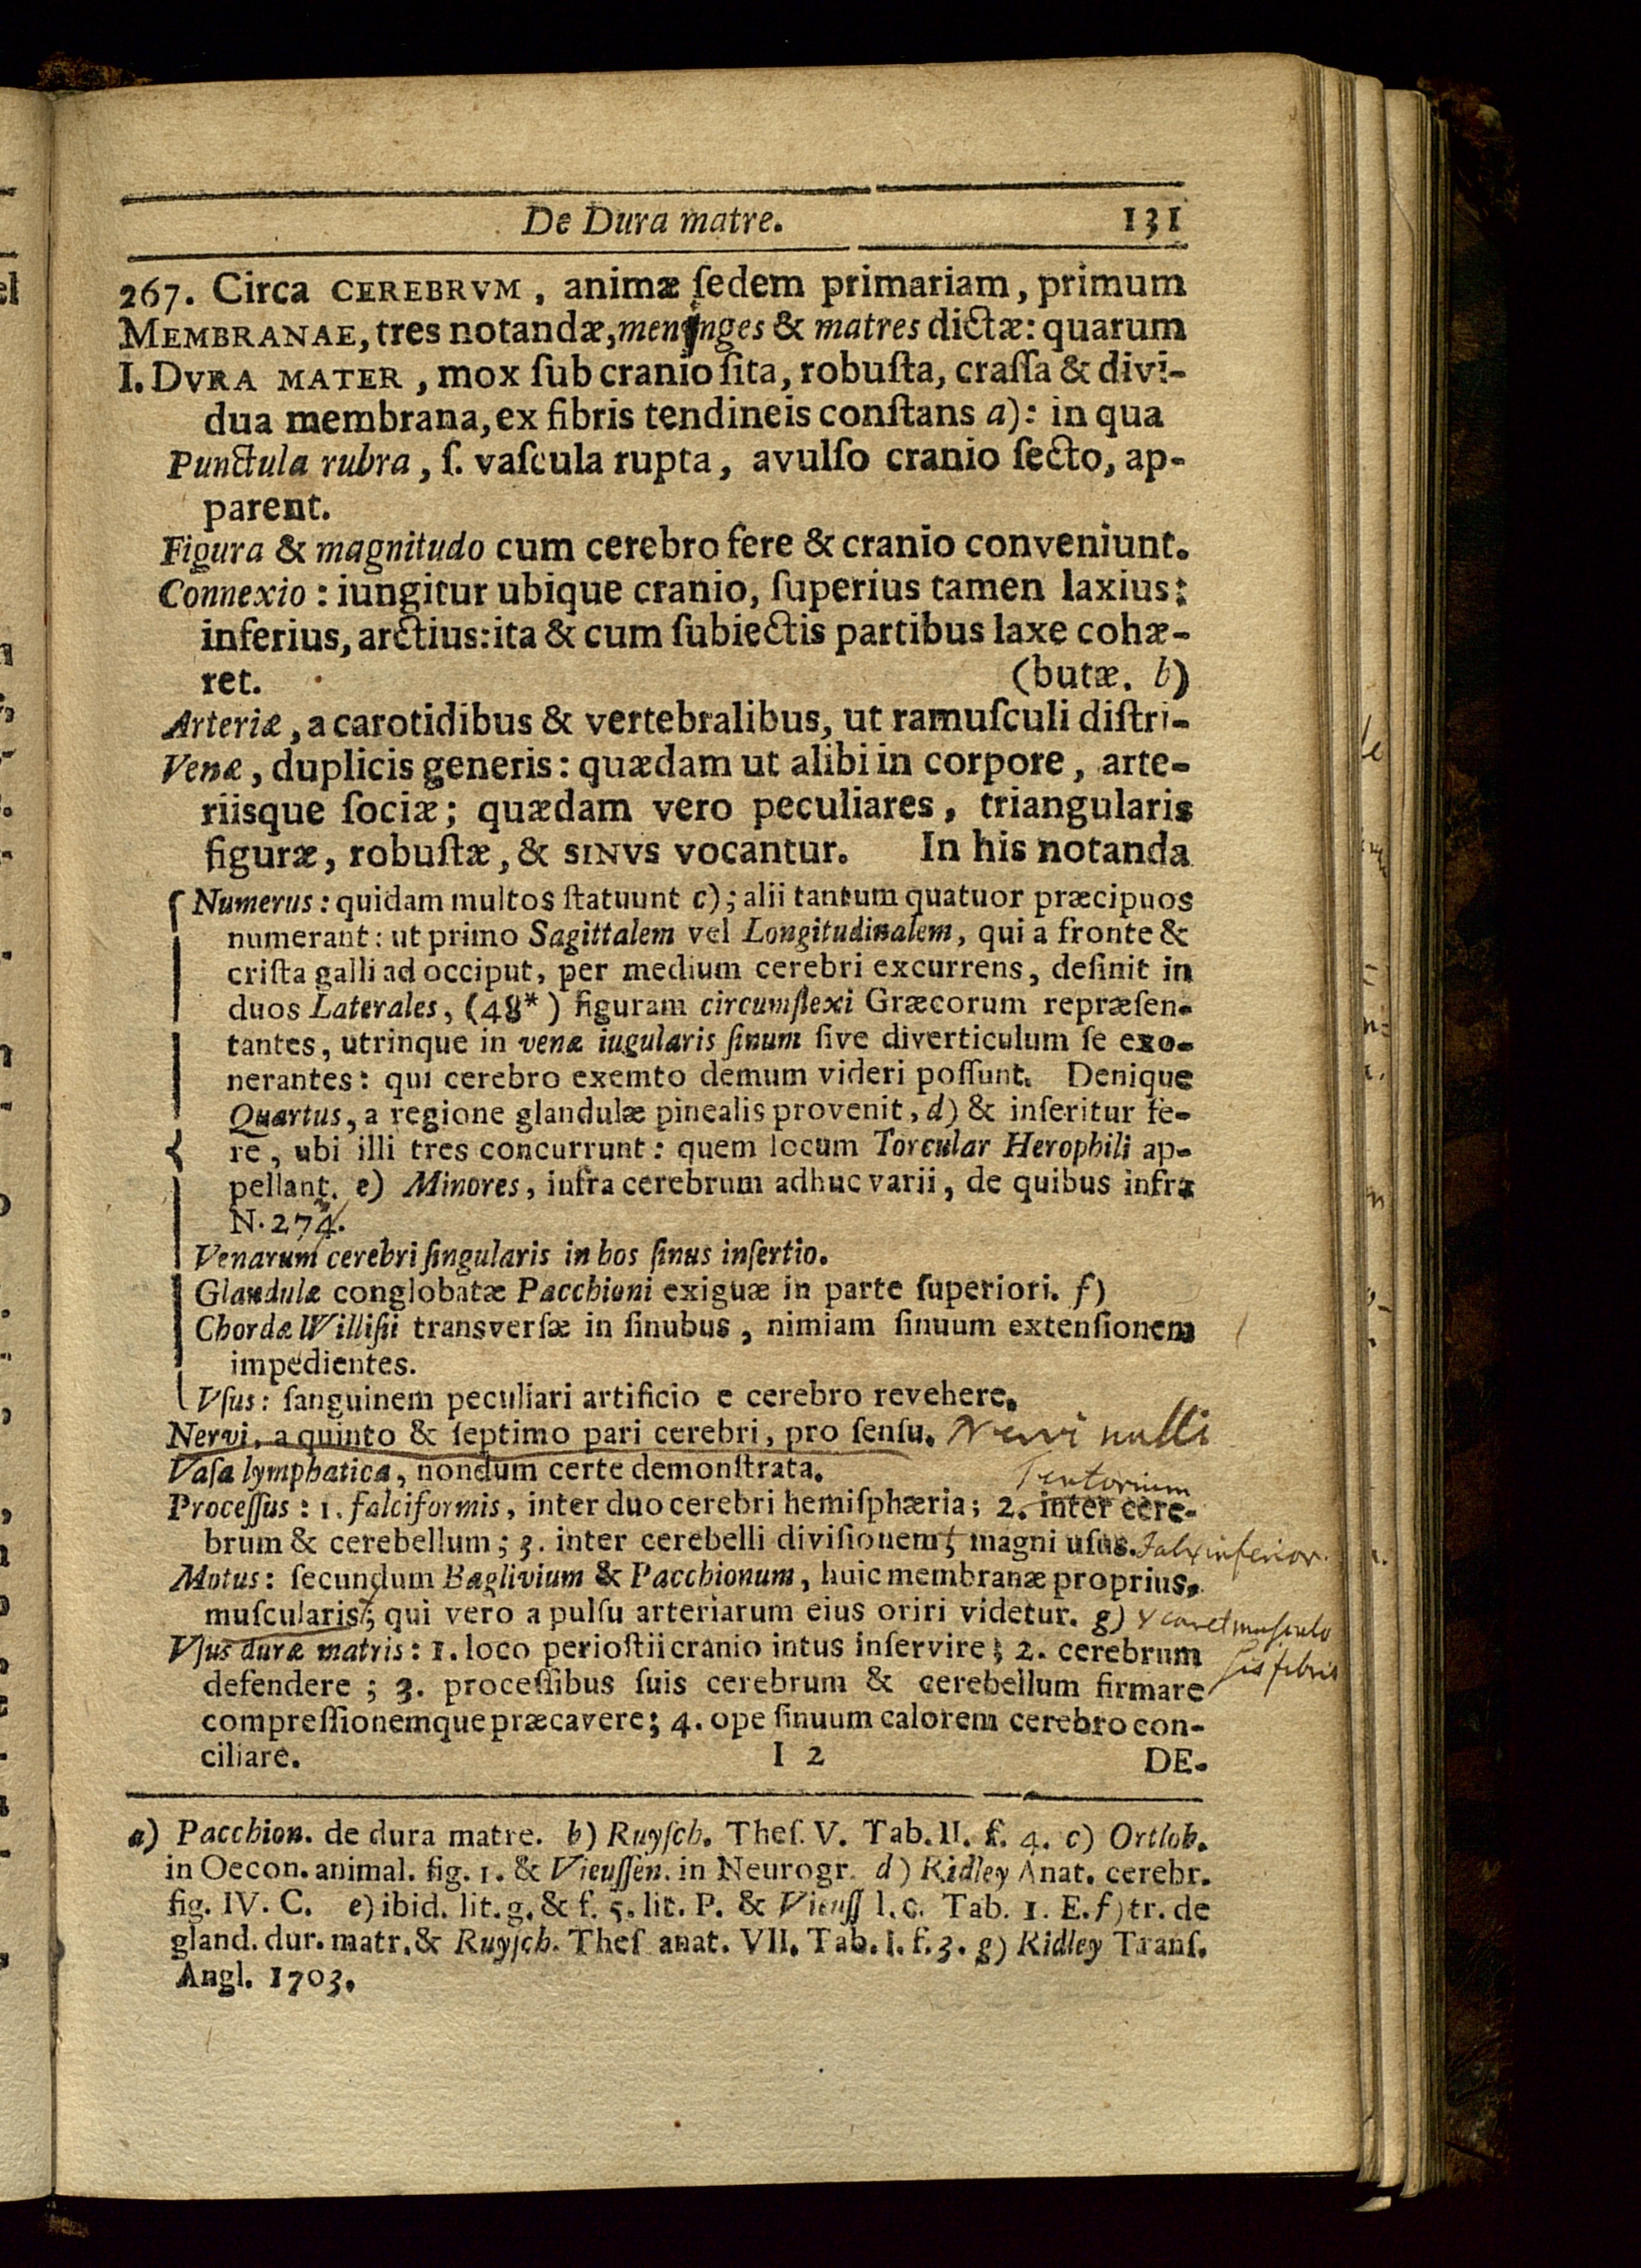 De Dura matre. 131
267. Circa CEREBRVM, animæ ſedem primariam, primum
MEMBRANAE, tres notandæ, meninges & matres dictæ: quarum
I. DVRA MATER, mox ſub cranio ſita, robuſta, craſſa & divi-
dua membrana, ex fibris tendineis conſtans a): in qua
Punctula rubra, ſ. vaſcula rupta, avulſo cranio ſecto, ap-
parent.
Figura & magnitudo cum cerebro fere & cranio conveniunt.
Connexio: iungitur ubique cranio, ſuperius tamen laxius:
inferius, arctius: ita & cum ſubiectis partibus laxe cohæ-
ret. (butæ. b)
Arteriæ, a carotidibus & vertebralibus, ut ramuſculi diſtri-
Venæ, duplicis generis: quædam ut alibi in corpore, arte-
riisque ſociæ; quædam vero peculiares, triangularis
figuræ, robuſtæ, & SINVS vocantur. In his notanda
Numerus: quidam multos ſtatuunt c); alii tantum quatuor præcipuos
numerant: ut primo Sagittalem vel Longitudinalem, qui a fronte &
criſta galli ad occiput, per medium cerebri excurrens, deſinit in
duos Laterales, (48*) figuram circumflexi Græcorum repræſen-
tantes, utrinque in venæ iugularis ſinum ſive diverticulum ſe exo-
nerantes: qui cerebro exemto demum videri poſſunt. Denique
Quartus, a regione glandulæ pinealis provenit, d) & inſeritur fe-
re, ubi illi tres concurrunt: quem locum Torcular Herophili ap-
pellant. e) Minores, infra cerebrum adhuc varii, de quibus infra
N. 274.
Venarum cerebri ſingularis in hos ſinus inſertio.
Glandulæ conglobatæ Pacchioni exiguæ in parte ſuperiori. f)
Chordæ Williſii transverſæ in ſinubus, nimiam ſinuum extenſionem
impedientes.
Vſus: ſanguinem peculiari artificio e cerebro revehere.
Nervi, a quinto & ſeptimo pari cerebri, pro ſenſu. Nervi nulli
Vaſa lymphatica, nondum certe demonſtrata.
Tentorium
Proceſſus: 1. falciformis, inter duo cerebri hemiſphæria; 2. inter cere-
brum & cerebellum; 3. inter cerebelli diviſionem; magni uſus. Falx inferior.
Motus: ſecundum Baglivium & Pacchionum, huic membranæ proprius,
muſcularis; qui vero a pulſu arteriarum eius oriri videtur. g) caret muſculo
Vſus duræ matris: 1. loco perioſtii cranio intus inſervire; 2. cerebrum
ſis fibris
defendere; 3. proceſſibus ſuis cerebrum & cerebellum firmare
compreſſionemque præcavere; 4. ope ſinuum calorem cerebro con-
ciliare. I 2 DE-
a) Pacchion. de dura matre. b) Ruyſch. Theſ. V. Tab. II. f. 4. c) Ortlob.
in Oecon. animal. fig. 1. & Vieuſſen. in Neurogr. d) Ridley Anat. cerebr.
fig. IV. C. e) ibid. lit. g. & f. 5. lit. P. & Vieuſſ l. c. Tab. 1. E. f) tr. de
gland. dur. matr. & Ruyſch. Theſ anat. VII. Tab. I. f. 3. g) Ridley Tranſ.
Angl. 1703.